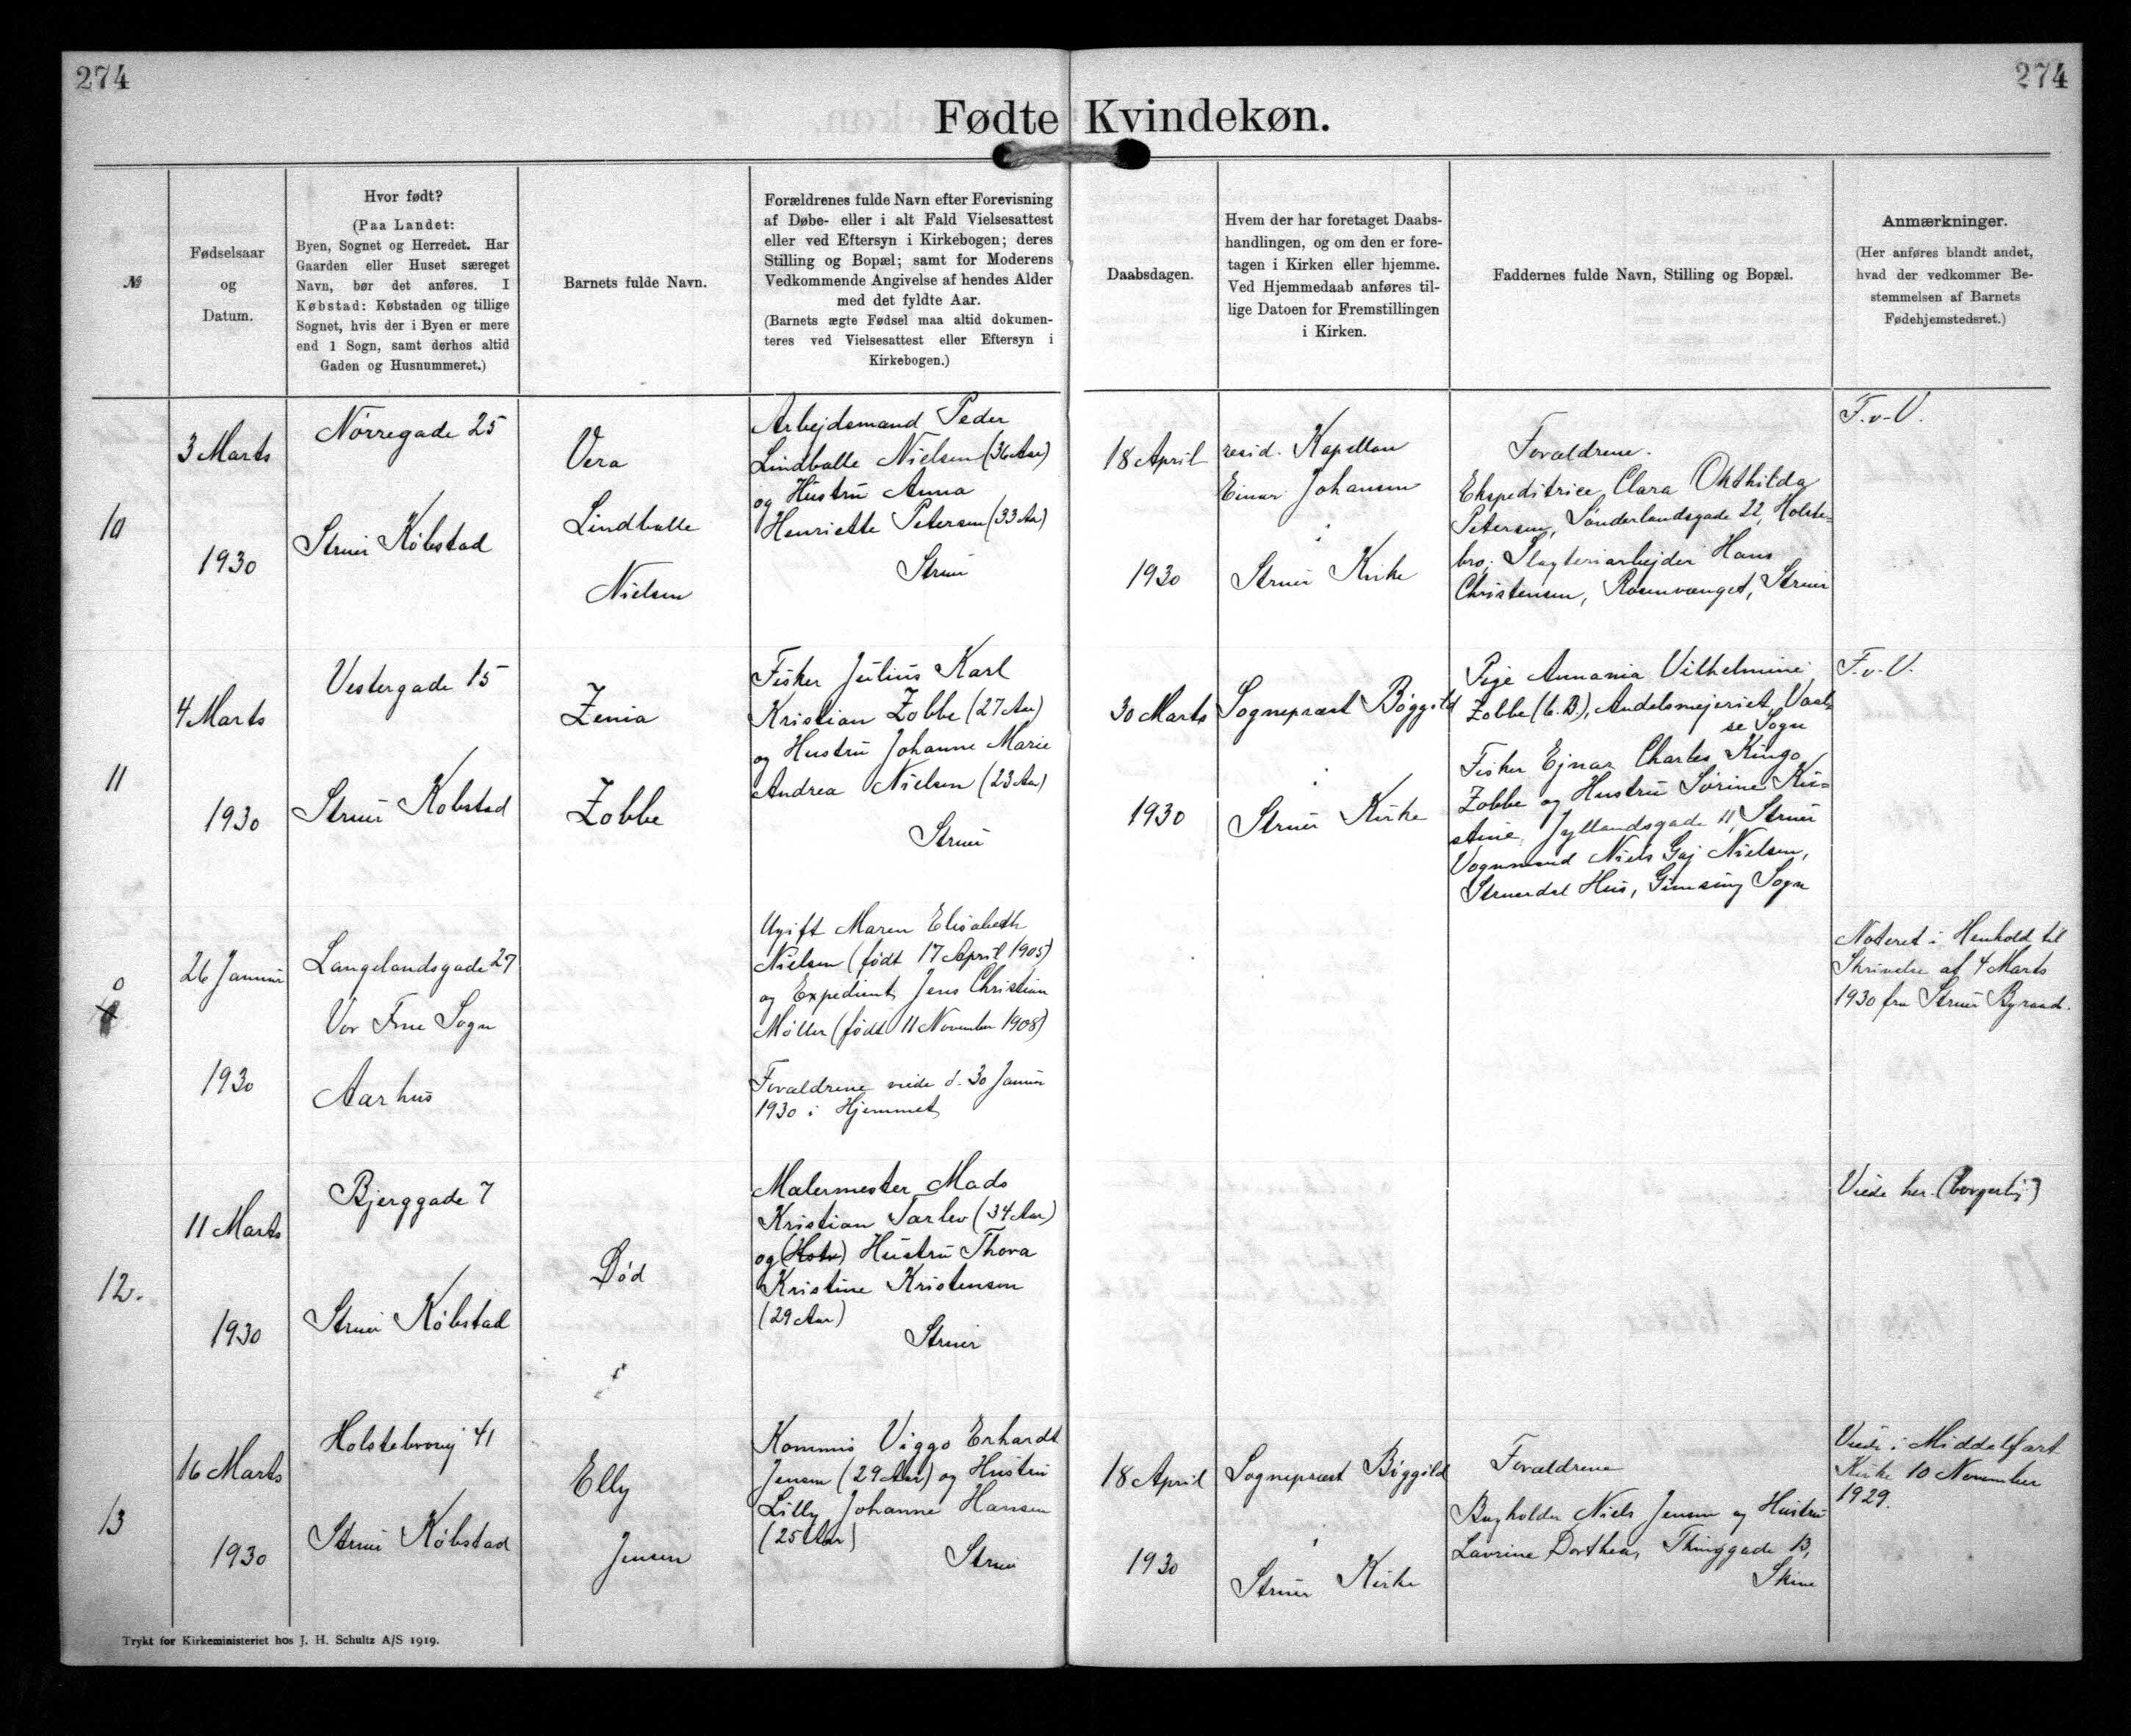 274
274
Fødte Kvindekøn.
№
Fødselsaar
og
Datum.
Hvor født?
(Paa Landet:
Byen, Sognet og Herredet. Har
Gaarden eller Huset særeget
Navn, bør det anføres. I
Købstad: Købstaden og tillige
Sognet, hvis der i Byen er mere
end 1 Sogn, samt derhos altid
Gaden og Husnummeret.)
Barnets fulde Navn.
Forældrenes fulde Navn efter Forevisning
af Døbe- eller i alt Fald Vielsesattest
eller ved Eftersyn i Kirkebogen; deres
Stilling og Bopæl; samt for Moderens
Vedkommende Angivelse af hendes Alder
med det fyldte Aar.
(Barnets ægte Fødsel maa altid dokumen-
teres ved Vielsesattest eller Eftersyn i
Kirkebogen.)
Daabsdagen.
Hvem der har foretaget Daabs-
handlingen, og om den er fore-
tagen i Kirken eller hjemme.
Ved Hjemmedaab anføres til-
lige Datoen for Fremstillingen
i Kirken.
Faddernes fulde Navn, Stilling og Bopæl.
Anmærkninger.
(Her anføres blandt andet,
hvad der vedkommer Be-
stemmelsen af Barnets
Fødehjemstedsret.)
10
3 Marts
1930
Nørregade 25
Struer Købstad
Vera
Lindballe
Nielsen
Arbejdsmand Peder
Lindballe Nielsen (36 Aar)
og Hustru Anna
Henriette Petersen (33 Aar)
Struer
18 April
1930
resid. Kapellan
Einar Johansen
i
Struer Kirke
Forældrene.
Ekspeditrice Clara Okthilda
Petersen, Sønderlandsgade 22, Holste-
bro; Slagteriarbejder Hans
Christensen, Rosenvænget, Struer
F.v.V.
11
4 Marts
1930
Vestergade 15
Struer Købstad
Zenia
Zobbe
Fisker Julius Karl
Kristian Zobbe (27 Aar)
og Hustru Johanne Marie
Andrea Nielsen (23 Aar)
Struer
30 Marts
1930
Sognepræst Bøggild
i
Struer Kirke
Pige Annania Vilhelmine
Zobbe (b.B.), Andelsmejeriet,
se Sogn
Fisker Ejnar Charles Kingo
Zobbe og Hustru Sørine Kri-
stine, Jyllandsgade 11, Struer
Vognmand Niels Gaj Nielsen,
Struerdal Hus, Gimsing Sogn
F.v.V.
0
26 Januar
1930
Langelandsgade 27
Vor Frue Sogn
Aarhus
Ugift Maren Elisabeth
Nielsen (født 17 April 1905)
og Expedient Jens Christian
Møller (født 11 November 1908)
Forældrene viede d. 30 Januar
1930 i Hjemmet
Noteret i Henhold til
Skrivelse af 4 Marts
1930 fra Struer Byraad.
12.
11 Marts
1930
Bjerggade 7
Struer Købstad
Død
Malermester Mads
Kristian Tarlev (34 Aar)
og Hustru Thora
Kristine Kristensen
(29 Aar)
Struer
Viede her. (borgerlig)
13
16 Marts
1930
Holstebrovej 41
Struer Købstad
Elly
Jensen
Kommis Viggo Erhardt
Jensen (29 Aar) og Hustru
Lilly Johanne Hansen
(25 Aar)
Struer
18 April
1930
Sognepræst Bøggild
i
Struer Kirke
Forældrene
Bogholder Niels Jensen og Hustru
Laurine Dorthea, Thinggade 13,
Skive
Viede i Middelfart
Kirke 10 November
1929.
Trykt for Kirkeministeriet hos J. H. Schultz A/S 1919.